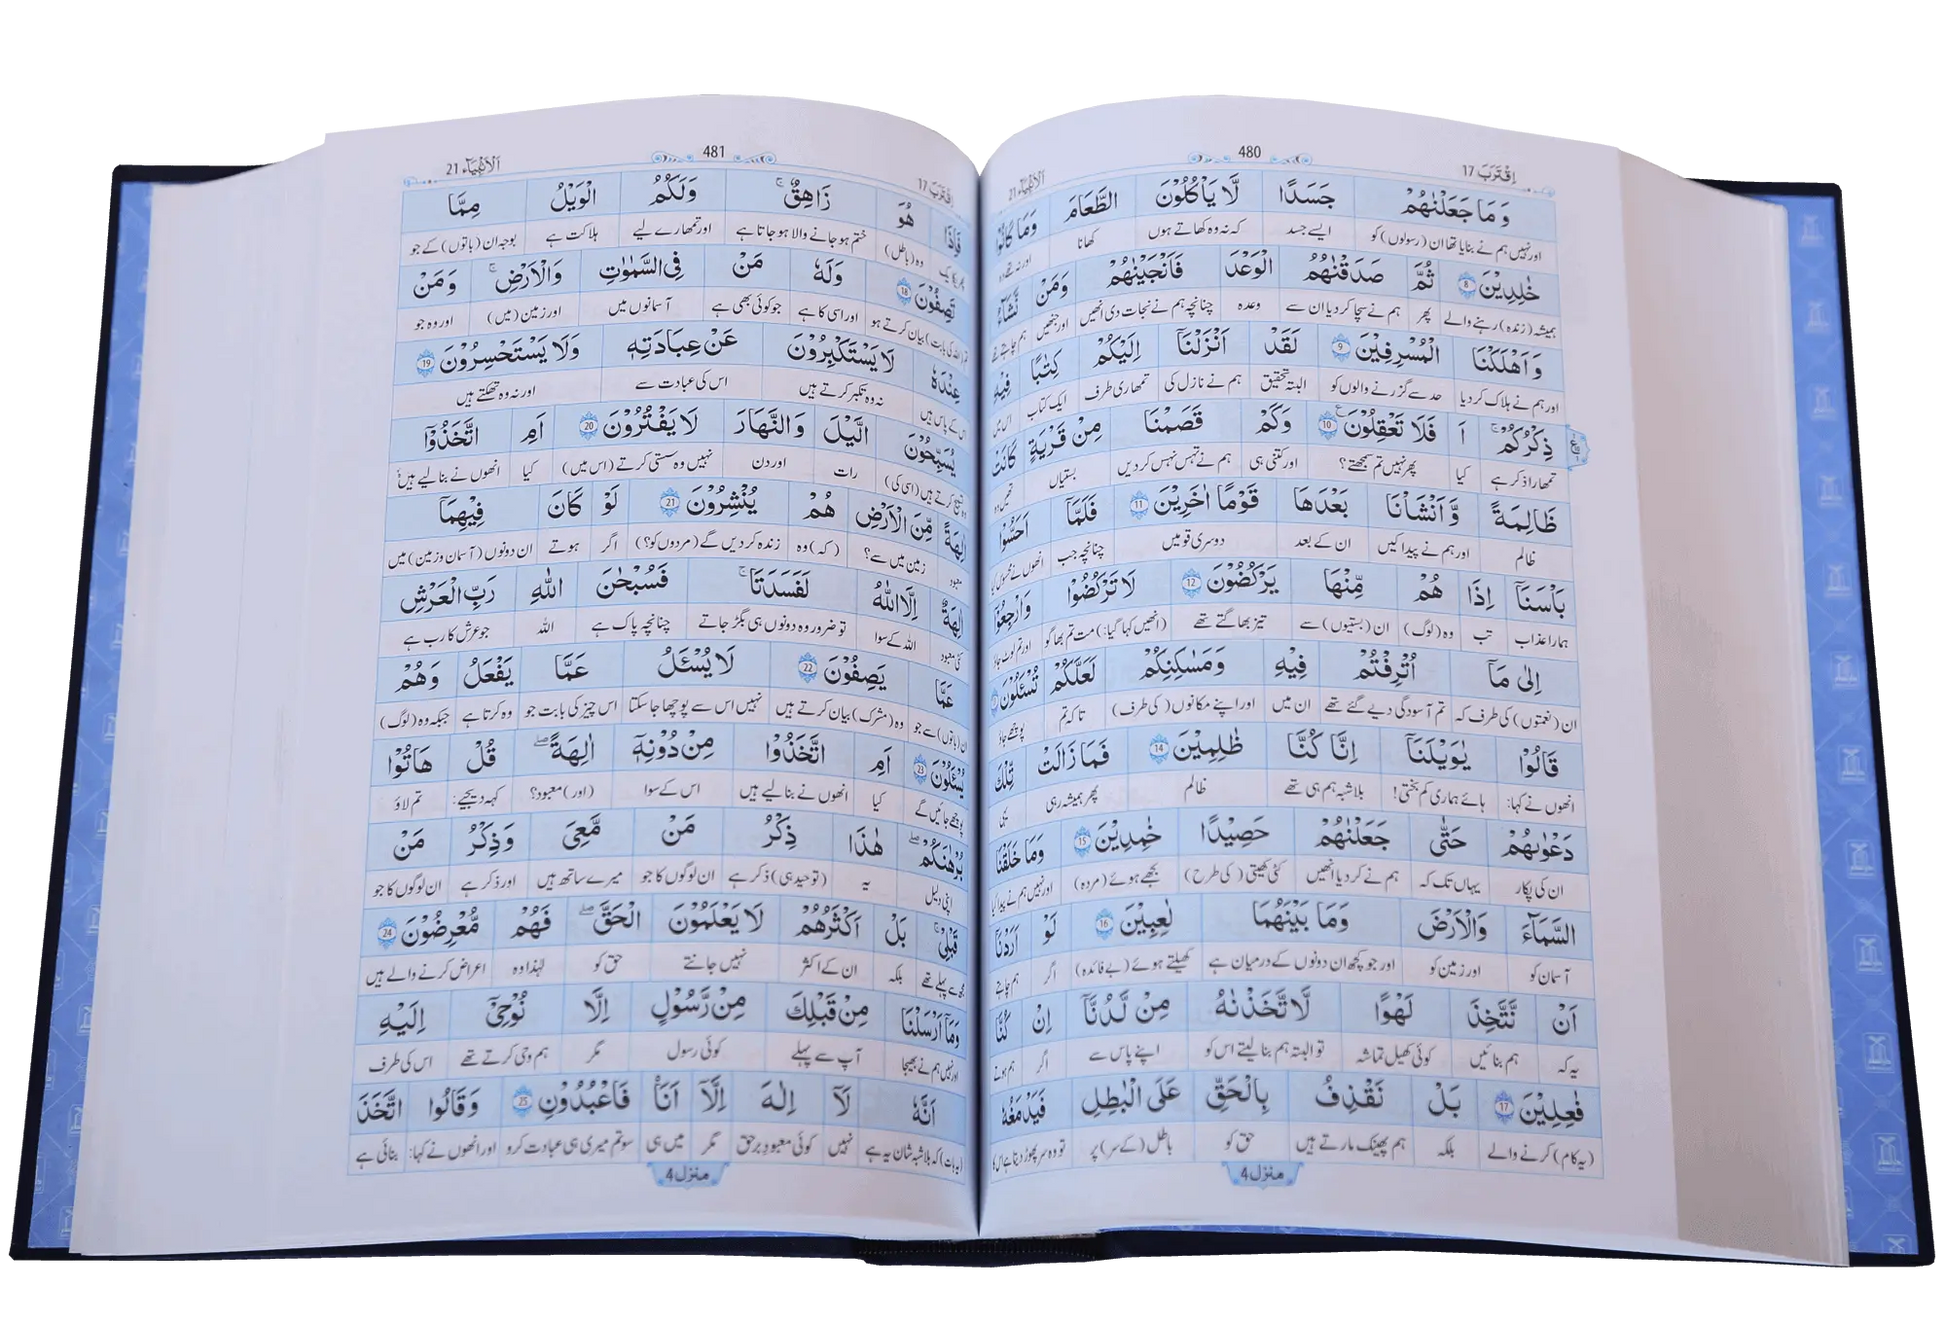 اِقْتَرَبَ 17
480
اَلْاَنْۢبِیَآء 21
وَ مَا جَعَلْنٰهُمْ جَسَدًا لَّا یَاْكُلُوْنَ الطَّعَامَ وَمَا كَانُوْا
اور نہیں ہم نے بنایا تھا ان (رسولوں) کو ایسے جسد کہ نہ وہ کھاتے ہوں کھانا اور نہ تھے وہ
خٰلِدِیْنَ 8 ثُمَّ صَدَقْنٰهُمُ الْوَعْدَ فَاَنْجَیْنٰهُمْ وَمَنْ نَّشَآءُ
ہمیشہ (زندہ) رہنے والے پھر ہم نے سچا کر دیا ان سے وعدہ چنانچہ ہم نے نجات دی انھیں اور جنھیں ہم چاہتے تھے
وَ اَهْلَكْنَا الْمُسْرِفِیْنَ 9 لَقَدْ اَنْزَلْنَاۤ اِلَیْكُمْ كِتٰبًا فِیْهِ
اور ہم نے ہلاک کر دیا حد سے گزرنے والوں کو البتہ تحقیق ہم نے نازل کی تمھاری طرف ایک کتاب اس میں
ذِكْرُكُمْ ۚ اَ فَلَا تَعْقِلُوْنَ 10 وَكَمْ قَصَمْنَا مِنْ قَرْیَةٍ كَانَتْ
تمھارا ذکر ہے کیا پھر نہیں تم سمجھتے؟ اور کتنی ہی ہم نے تہس نہس کر دیں بستیاں تھیں وہ
ظَالِمَةً وَّ اَنْشَاْنَا بَعْدَهَا قَوْمًا اٰخَرِیْنَ 11 فَلَمَّاۤ اَحَسُّوْا
ظالم اور ہم نے پیدا کیں ان کے بعد دوسری قومیں چنانچہ جب انھوں نے محسوس کیا
بَاْسَنَاۤ اِذَا هُمْ مِّنْهَا یَرْكُضُوْنَ 12 لَا تَرْكُضُوْا وَارْجِعُوْۤا
ہمارا عذاب تب وہ (لوگ) ان (بستیوں) سے تیز بھاگتے تھے (انھیں کہا گیا:) مت تم بھاگو اور تم لوٹ جاؤ
اِلٰی مَاۤ اُتْرِفْتُمْ فِیْهِ وَمَسٰكِنِكُمْ لَعَلَّكُمْ تُسْـَٔلُوْنَ
ان (نعمتوں) کی طرف کہ تم آسودگی دیے گئے تھے ان میں اور اپنے مکانوں (کی طرف) تاکہ تم پوچھے جاؤ
قَالُوْا یٰوَیْلَنَاۤ اِنَّا كُنَّا ظٰلِمِیْنَ 14 فَمَا زَالَتْ تِّلْكَ
انھوں نے کہا: ہائے ہماری کم بختی! بلاشبہ ہم ہی تھے ظالم پھر ہمیشہ رہی یہی
دَعْوٰىهُمْ حَتّٰی جَعَلْنٰهُمْ حَصِیْدًا خٰمِدِیْنَ 15 وَمَا خَلَقْنَا
ان کی پکار یہاں تک کہ ہم نے کر دیا انھیں کٹی کھیتی (کی طرح) بجھے ہوئے (مردہ) اور نہیں ہم نے پیدا کیا
السَّمَآءَ وَالْاَرْضَ وَمَا بَیْنَهُمَا لٰعِبِیْنَ 16 لَوْ اَرَدْنَاۤ
آسمان کو اور زمین کو اور جو کچھ ان دونوں کے درمیان ہے کھیلتے ہوئے (بے فائدہ) اگر ہم چاہتے
اَنْ نَّتَّخِذَ لَهْوًا لَّا تَّخَذْنٰهُ مِنْ لَّدُنَّاۤ اِنْ كُنَّا
یہ کہ ہم بنائیں کوئی کھیل تماشہ تو البتہ ہم بنا لیتے اس کو اپنے پاس سے اگر ہم ہوتے
فٰعِلِیْنَ 17 بَلْ نَقْذِفُ بِالْحَقِّ عَلَی الْبَاطِلِ فَیَدْمَغُهٗ
(یہ کام) کرنے والے بلکہ ہم پھینک مارتے ہیں حق کو باطل (کے سر) پر تو وہ سر پھوڑ دیتا ہے اس کا
منزل 4
اِقْتَرَبَ 17
481
اَلْاَنْۢبِیَآء 21
فَاِذَا هُوَ زَاهِقٌ ۚ وَلَكُمُ الْوَیْلُ مِمَّا
وہ (باطل) ختم ہو جانے والا ہو جاتا ہے اور تمھارے لیے ہلاکت ہے بوجہ ان (باتوں) کے جو
تَصِفُوْنَ 18 وَلَهٗ مَنْ فِی السَّمٰوٰتِ وَالْاَرْضِ ۚ وَمَنْ
بیان کرتے ہو اور اسی کا ہے جو کوئی بھی ہے آسمانوں میں اور زمین (میں) اور وہ جو
عِنْدَهٗ لَا یَسْتَكْبِرُوْنَ عَنْ عِبَادَتِهٖ وَلَا یَسْتَحْسِرُوْنَ 19
اس کے پاس ہیں نہ وہ تکبر کرتے ہیں اس کی عبادت سے اور نہ وہ تھکتے ہیں
یُسَبِّحُوْنَ الَّیْلَ وَالنَّهَارَ لَا یَفْتُرُوْنَ 20 اَمِ اتَّخَذُوْۤا
وہ تسبیح کرتے ہیں (اس کی) رات اور دن نہیں وہ سستی کرتے (اس میں) کیا انھوں نے بنا لیے ہیں
اٰلِهَةً مِّنَ الْاَرْضِ هُمْ یُنْشِرُوْنَ 21 لَوْ كَانَ فِیْهِمَاۤ
معبود زمین میں سے؟ (کہ) وہ زندہ کر دیں گے (مردوں کو؟) اگر ہوتے ان دونوں (آسمان و زمین) میں
اٰلِهَةٌ اِلَّا اللّٰهُ لَفَسَدَتَا ۚ فَسُبْحٰنَ اللّٰهِ رَبِّ الْعَرْشِ
کئی معبود اللہ کے سوا تو ضرور وہ دونوں ہی بگڑ جاتے چنانچہ پاک ہے اللہ جو عرش کا رب ہے
عَمَّا یَصِفُوْنَ 22 لَا یُسْـَٔلُ عَمَّا یَفْعَلُ وَهُمْ
ان (باتوں) سے جو وہ (مشرک) بیان کرتے ہیں نہیں اس سے پوچھا جا سکتا اس چیز کی بابت جو وہ کرتا ہے جبکہ وہ (لوگ)
یُسْـَٔلُوْنَ 23 اَمِ اتَّخَذُوْا مِنْ دُوْنِهٖۤ اٰلِهَةً ؕ قُلْ هَاتُوْا
پوچھے جائیں گے کیا انھوں نے بنا لیے ہیں اس کے سوا (اور) معبود؟ کہہ دیجیے: تم لاؤ
بُرْهٰنَكُمْ هٰذَا ذِكْرُ مَنْ مَّعِیَ وَذِكْرُ مَنْ
اپنی دلیل یہ (توحید ہی) ذکر ہے ان لوگوں کا جو میرے ساتھ ہیں اور ذکر ہے ان لوگوں کا جو
قَبْلِیْ ؕ بَلْ اَكْثَرُهُمْ لَا یَعْلَمُوْنَ الْحَقَّ فَهُمْ مُّعْرِضُوْنَ 24
مجھ سے پہلے تھے بلکہ ان کے اکثر نہیں جانتے حق کو لہٰذا وہ اعراض کرنے والے ہیں
وَمَاۤ اَرْسَلْنَا مِنْ قَبْلِكَ مِنْ رَّسُوْلٍ اِلَّا نُوْحِیْۤ اِلَیْهِ
اور نہیں ہم نے بھیجا آپ سے پہلے کوئی رسول مگر ہم وحی کرتے تھے اس کی طرف
اَنَّهٗ لَاۤ اِلٰهَ اِلَّاۤ اَنَا فَاعْبُدُوْنِ 25 وَقَالُوا اتَّخَذَ
(یہ بات) کہ بلاشبہ شان یہ ہے نہیں کوئی معبودِ برحق مگر میں ہی سو تم میری ہی عبادت کرو اور انھوں نے کہا: بنائی ہے
منزل 4